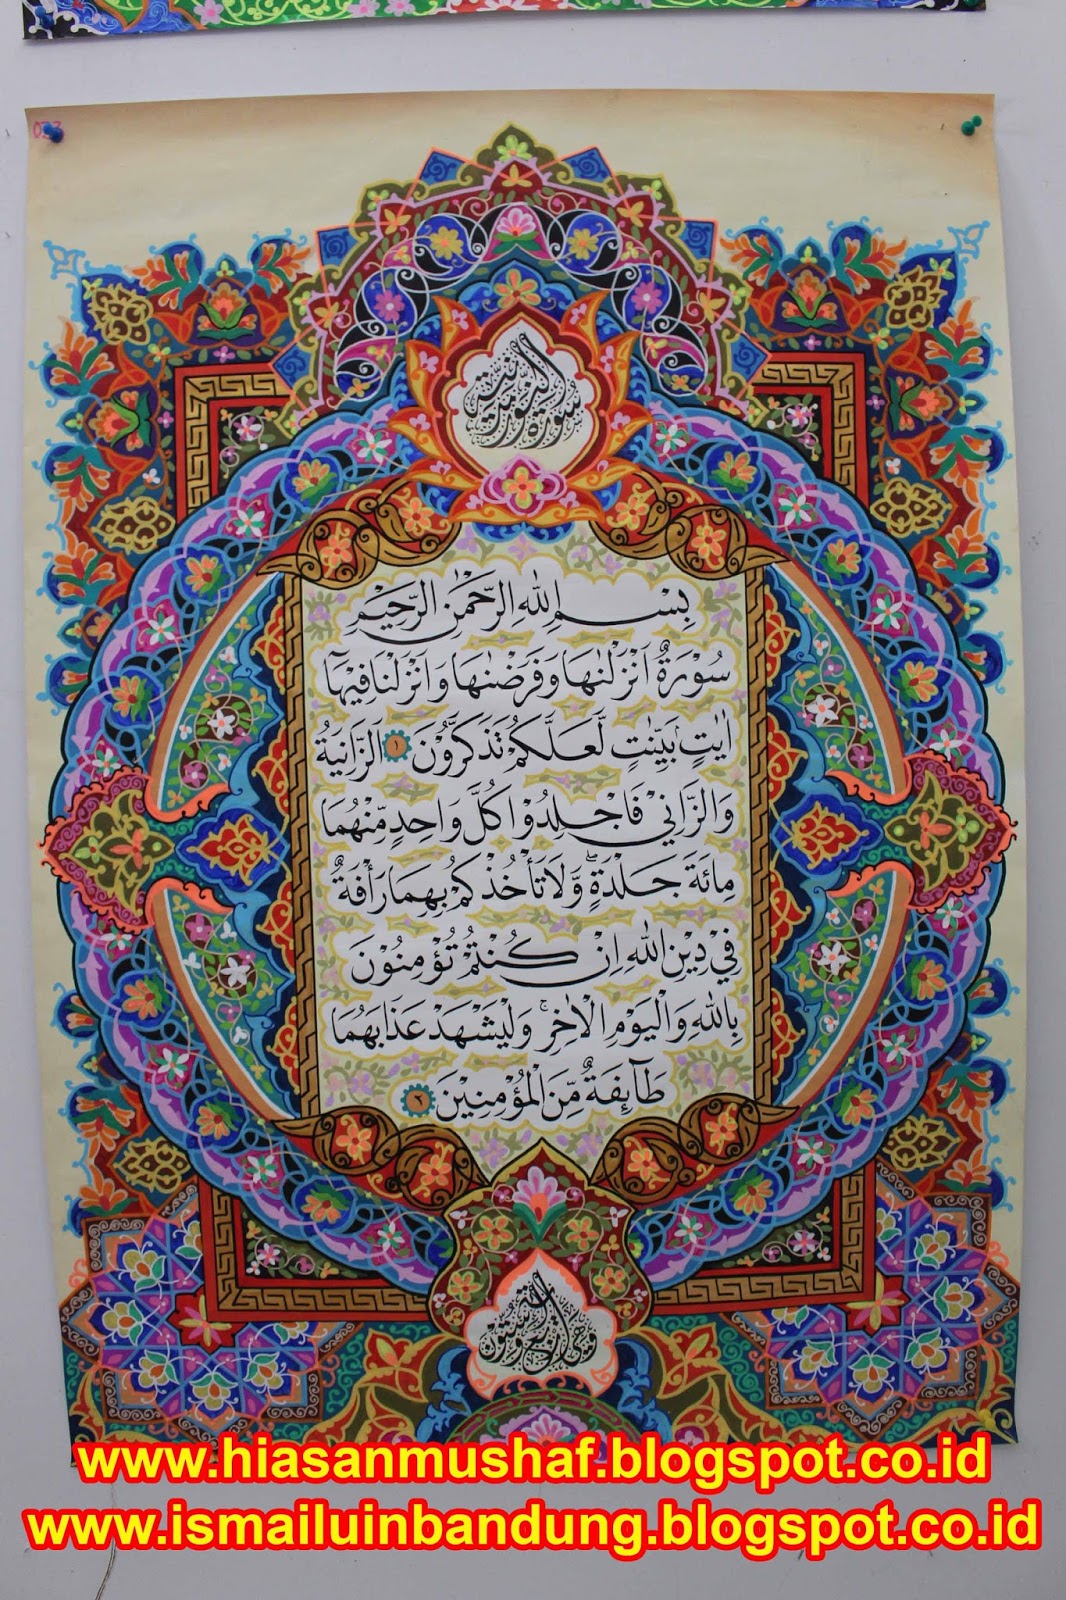 033
سُوْرَةُ النُّوْرِ مَدَنِيَّةٌ
بِسْمِ اللّٰهِ الرَّحْمٰنِ الرَّحِيْمِ
سُوْرَةٌ اَنْزَلْنٰهَا وَفَرَضْنٰهَا وَاَنْزَلْنَا فِيْهَآ
اٰيٰتٍ ۢ بَيِّنٰتٍ لَّعَلَّكُمْ تَذَكَّرُوْنَ ١ اَلزَّانِيَةُ
وَالزَّانِيْ فَاجْلِدُوْا كُلَّ وَاحِدٍ مِّنْهُمَا
مِائَةَ جَلْدَةٍ ۖ وَّلَا تَأْخُذْكُمْ بِهِمَا رَأْفَةٌ
فِيْ دِيْنِ اللّٰهِ اِنْ كُنْتُمْ تُؤْمِنُوْنَ
بِاللّٰهِ وَالْيَوْمِ الْاٰخِرِ ۚ وَلْيَشْهَدْ عَذَابَهُمَا
طَآئِفَةٌ مِّنَ الْمُؤْمِنِيْنَ ٢
www.hiasanmushaf.blogspot.co.id
www.ismailuinbandung.blogspot.co.id